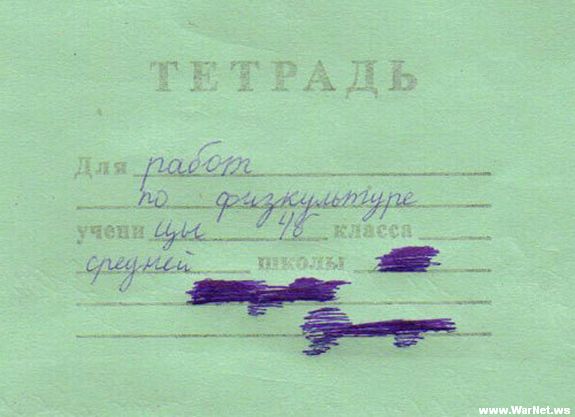 ТЕТРАДЬ
Для работ
по физкультуре
учени цы 4б класса
средней школы
www.WarNet.ws